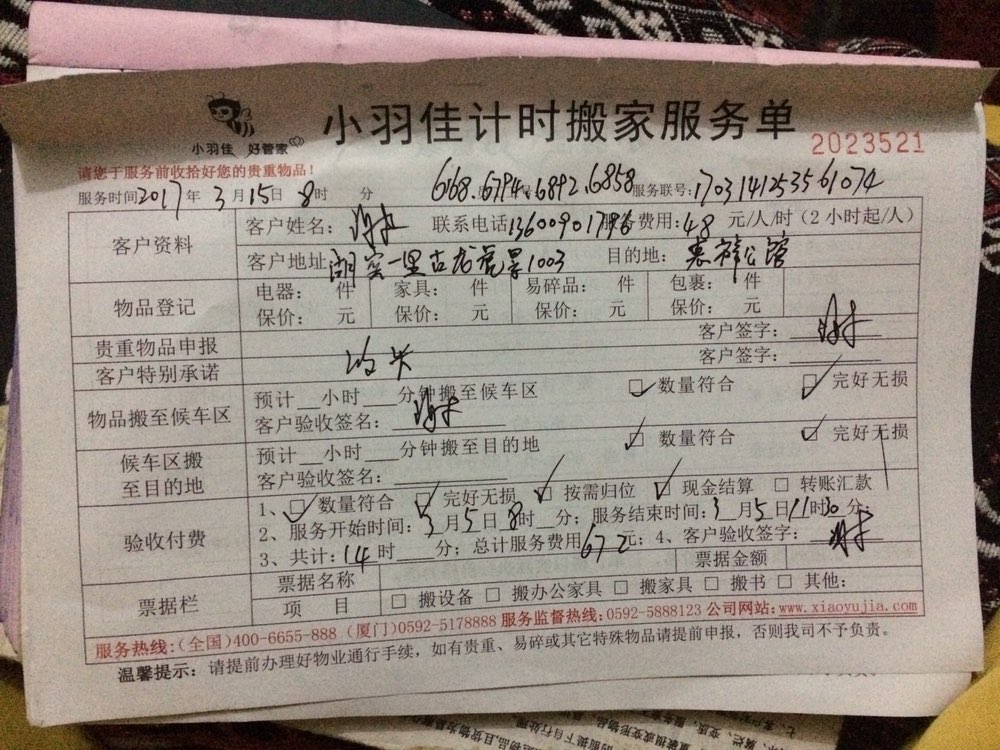 小羽佳 好管家
小羽佳计时搬家服务单
2023521
请您于服务前收拾好您的贵重物品!
服务时间2017年3月15日8时 分 6168.6794.6892.6858服务联号:1703141253561074
客户资料 客户姓名: 联系电话13600901796服务费用:48元/人/时(2小时起/人)
客户地址:湖宾一里古龙虎景1003 目的地: 公馆
物品登记 电器: 件 家具: 件 易碎品: 件 包裹: 件
保价: 元 保价: 元 保价: 元 保价: 元
贵重物品申报 客户签字:
客户特别承诺 客户签字:
物品搬至候车区 预计__小时___分钟搬至候车区 数量符合 完好无损
客户验收签名:
候车区搬至目的地 预计__小时___分钟搬至目的地 数量符合 完好无损
客户验收签名:
验收付费 1、数量符合 完好无损 按需归位 现金结算 转账汇款
2、服务开始时间:3月5日8时__分;服务结束时间:3月5日11时30分;
3、共计:14时___分;总计服务费用672元;4、客户验收签字:
票据栏 票据名称 票据金额
项 目 □ 搬设备 □ 搬办公家具 □ 搬家具 □ 搬书 □ 其他:
服务热线:(全国)400-6655-888 (厦门)0592-5178888 服务监督热线:0592-5888123 公司网站:www.xiaoyujia.com
温馨提示:请提前办理好物业通行手续,如有贵重、易碎或其它特殊物品请提前申报,否则我司不予负责。